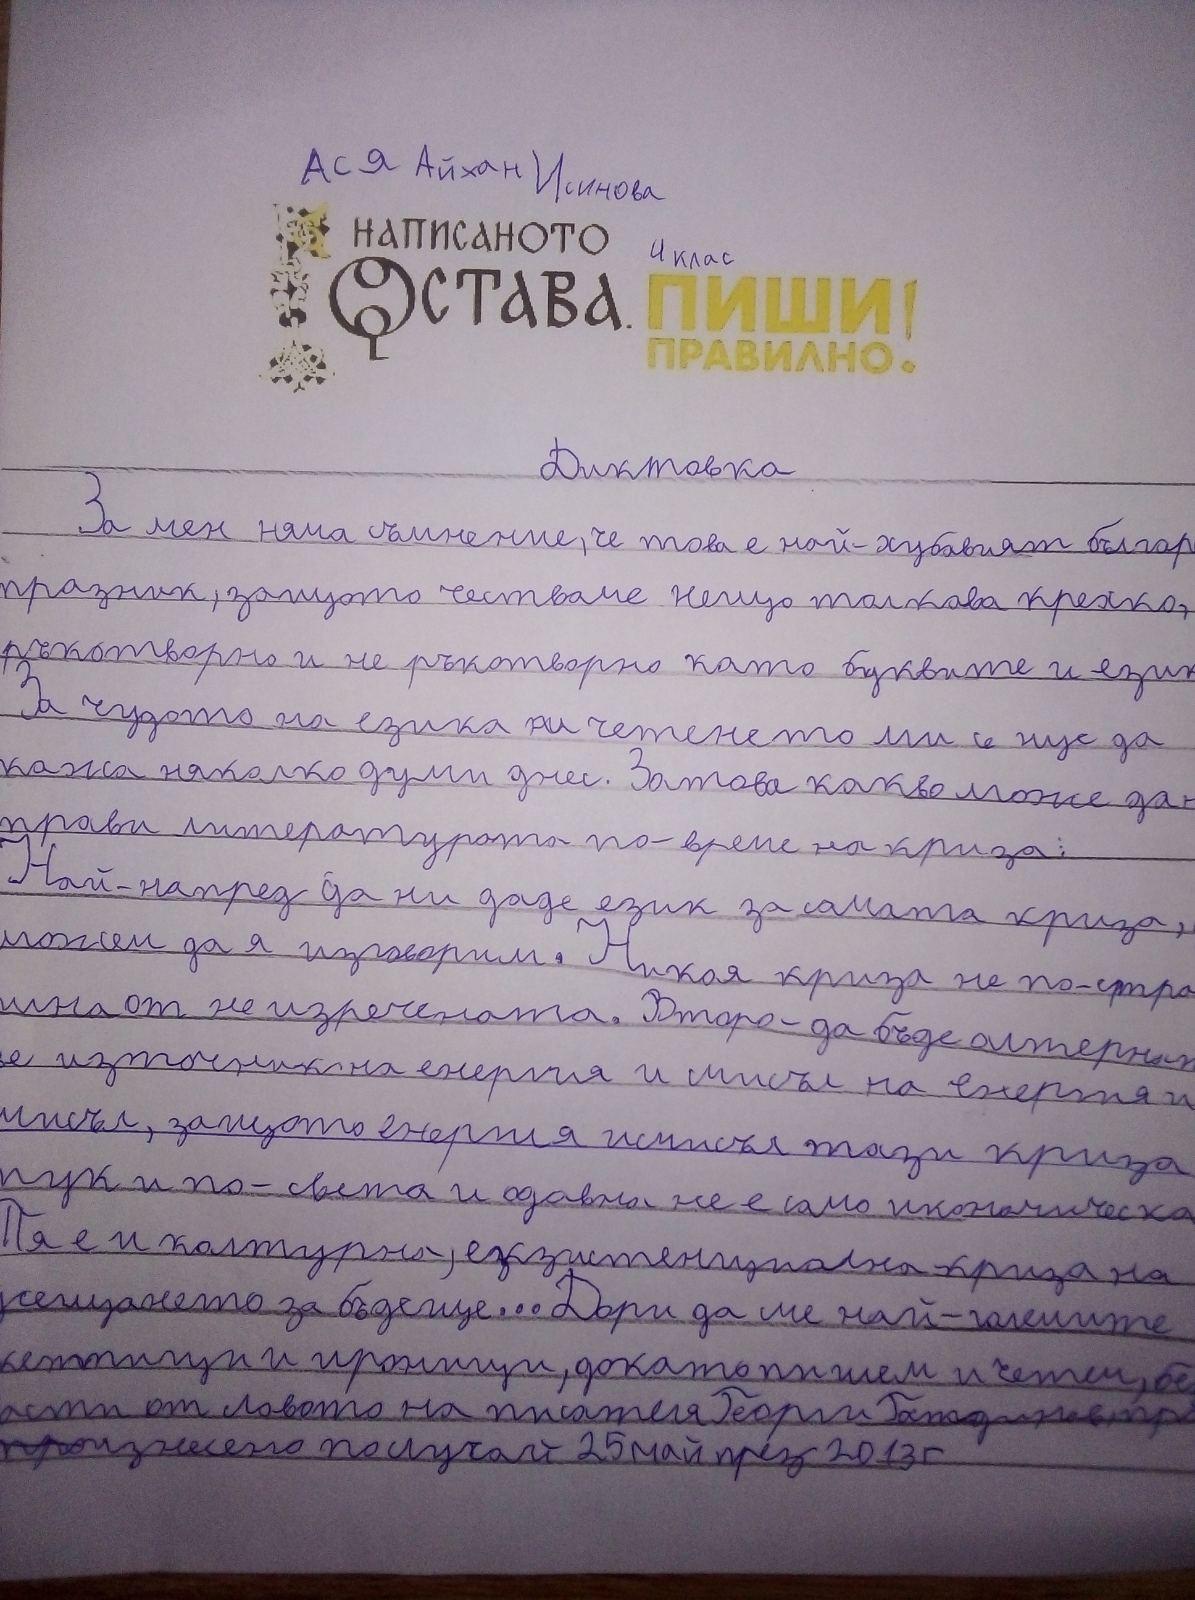 Ася Айхан Исинова
НАПИСАНОТО
ОСТАВА.
4 клас
ПИШИ
ПРАВИЛНО!
Диктовка
За мен няма съмнение, че това е най-хубавият българ
празник, защото честваме нещо толкова крехко,
ръкотворно и не ръкотворно като буквите и език
За чудото на езика и четенето ми се ще да
кажа няколко думи днес. Затова какво може да н
прави литературата по-време на криза:
Най-напред да ни даде език за самата криза,
можем да я изговорим. Никоя криза не по-стра
шна от не изречената. Второ-да бъде алтернат
ве източник на енергия и смисъл на енергия и
мисъл, защото енергия и смисъл тази криза
тук и по-света и одавна не е само икономическа
Тя е и културна, екзистенциална криза на
усещането за бъдеще... Дори да сме най-големите
кептици и ироници, докато пишем и четем, без
асти от ловото на писателя Георги Господинов, пр
произнесено по случай 25 май през 2013г